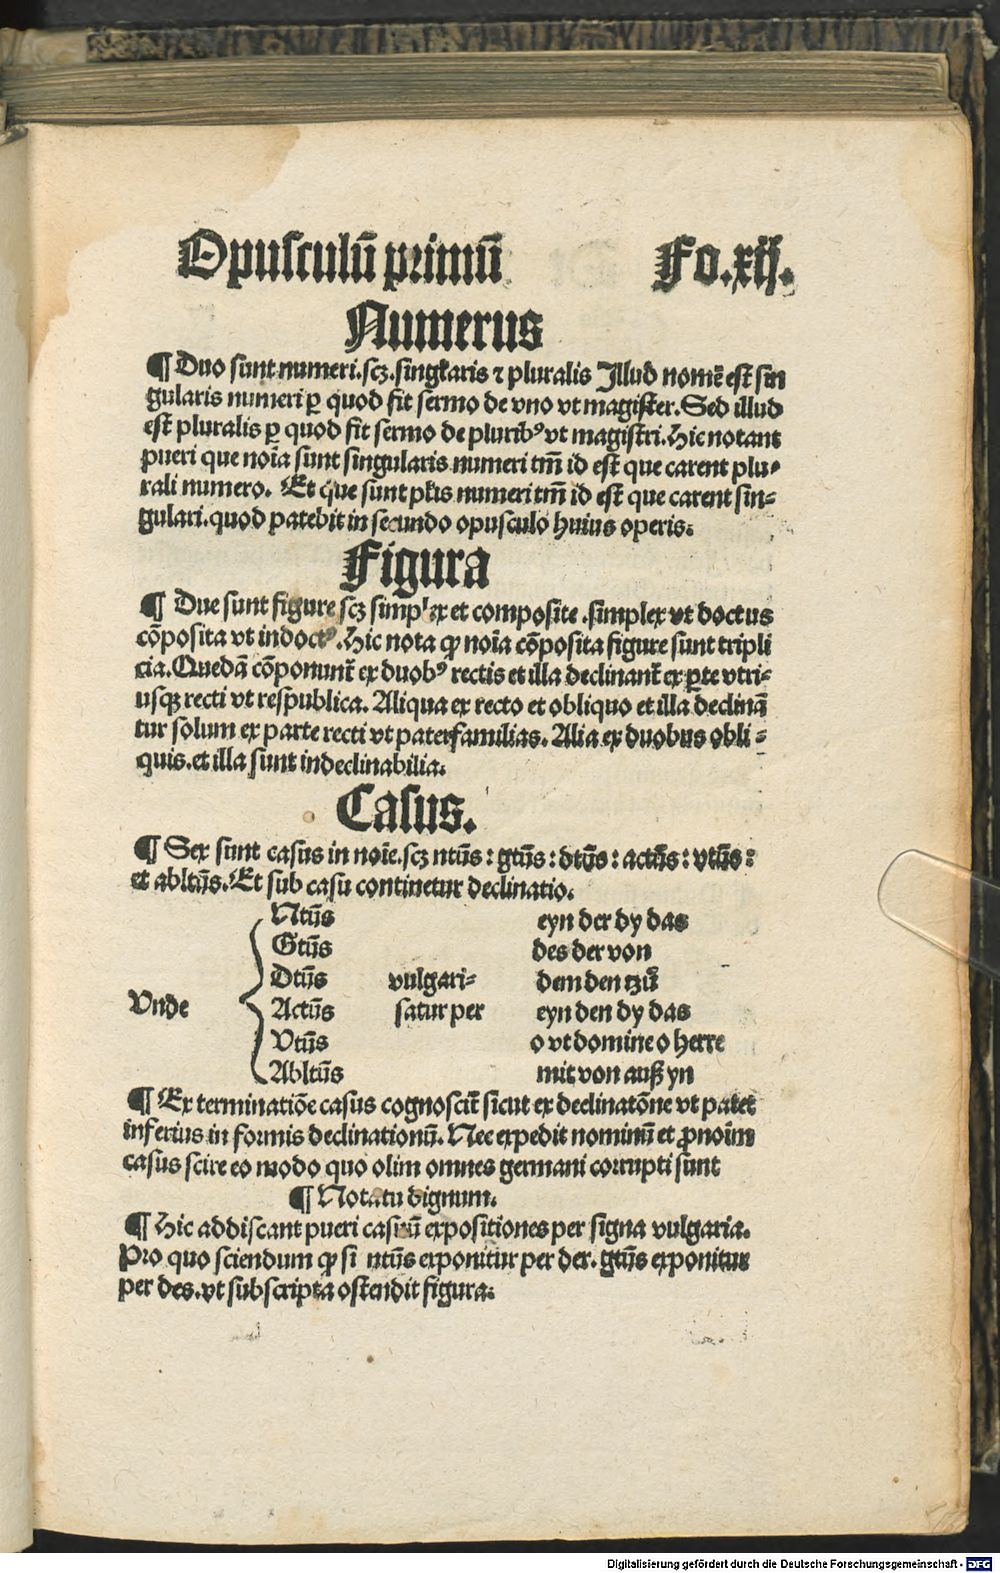 Opusculū primū Fo.xij.
Numerus
¶ Duo sunt numeri.scꝫ.singl̄aris ⁊ pluralis Illud nomē est sin
gularis numeri ꝑ quod fit sermo de vno vt magister. Sed illud
est pluralis ꝑ quod fit sermo de pluribꝰ vt magistri. Hic notant
pueri que noīa sunt singularis numeri tm̄ id est que carent plu⸗
rali numero. Et que sunt pl̄is numeri tm̄ id est que carent sin⸗
gulari. quod patebit in secundo opusculo huius operis.
Figura
¶ Due sunt figure scꝫ simplex et composite .simplex vt doctus
cōposita vt indoctꝰ. Hic nota ꝙ noīa cōposita figure sunt tripli
cia. Quedā cōponunt̄ ex duobꝰ rectis et illa declinant̄ ex ꝑte vtri⸗
usqꝫ recti vt respublica. Aliqua ex recto et obliquo et illa declinā
tur solum ex parte recti vt paterfamilias. Alia ex duobus obli⸗
quis. et illa sunt indeclinabilia.
Casus.
¶ Sex sunt casus in noīe.scꝫ ntūs: gtūs: dtūs: actūs: vtūs:
et abltūs. Et sub casu continetur declinatio.
Ntūs eyn der dy das
Gtūs des der von
Dtūs vulgari⸗ dem den tzů
Vnde Actūs satur per eyn den dy das
Vtūs o vt domine o herre
Abltūs mit von auß yn
¶ Ex terminatiōe casus cognoscit̄ sicut ex declinatōne vt patet
inferius in formis declinationū. Nec expedit nominū et ꝓnoīm
casus scire eo modo quo olim omnes germani corrupti sunt
¶ Notatu dignum.
¶ Hic addiscant pueri casuū expositiones per signa vulgaria.
Pro quo sciendum ꝙ si ntūs exponitur per der. gtūs exponitur
per des. vt subscripta ostendit figura.
Digitalisierung gefördert durch die Deutsche Forschungsgemeinschaft - DFG